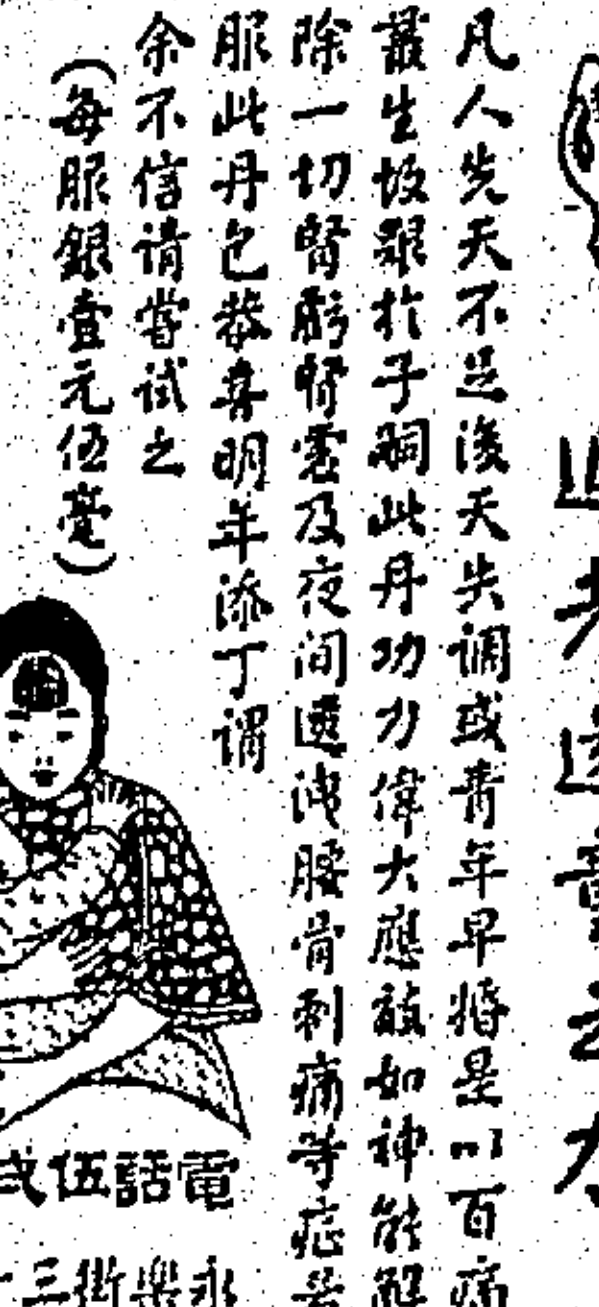 凡人先天不足後天失調或青年早婚是以百病
叢生故艱於子嗣此丹功力偉大應效如神能解
除一切腎虧腎寒及夜間遺洩腰骨刺痛等症
服此丹包恭喜明年添丁謂
余不信請嘗試之
(每服銀壹元伍毫)
電話伍弍
永樂街三十